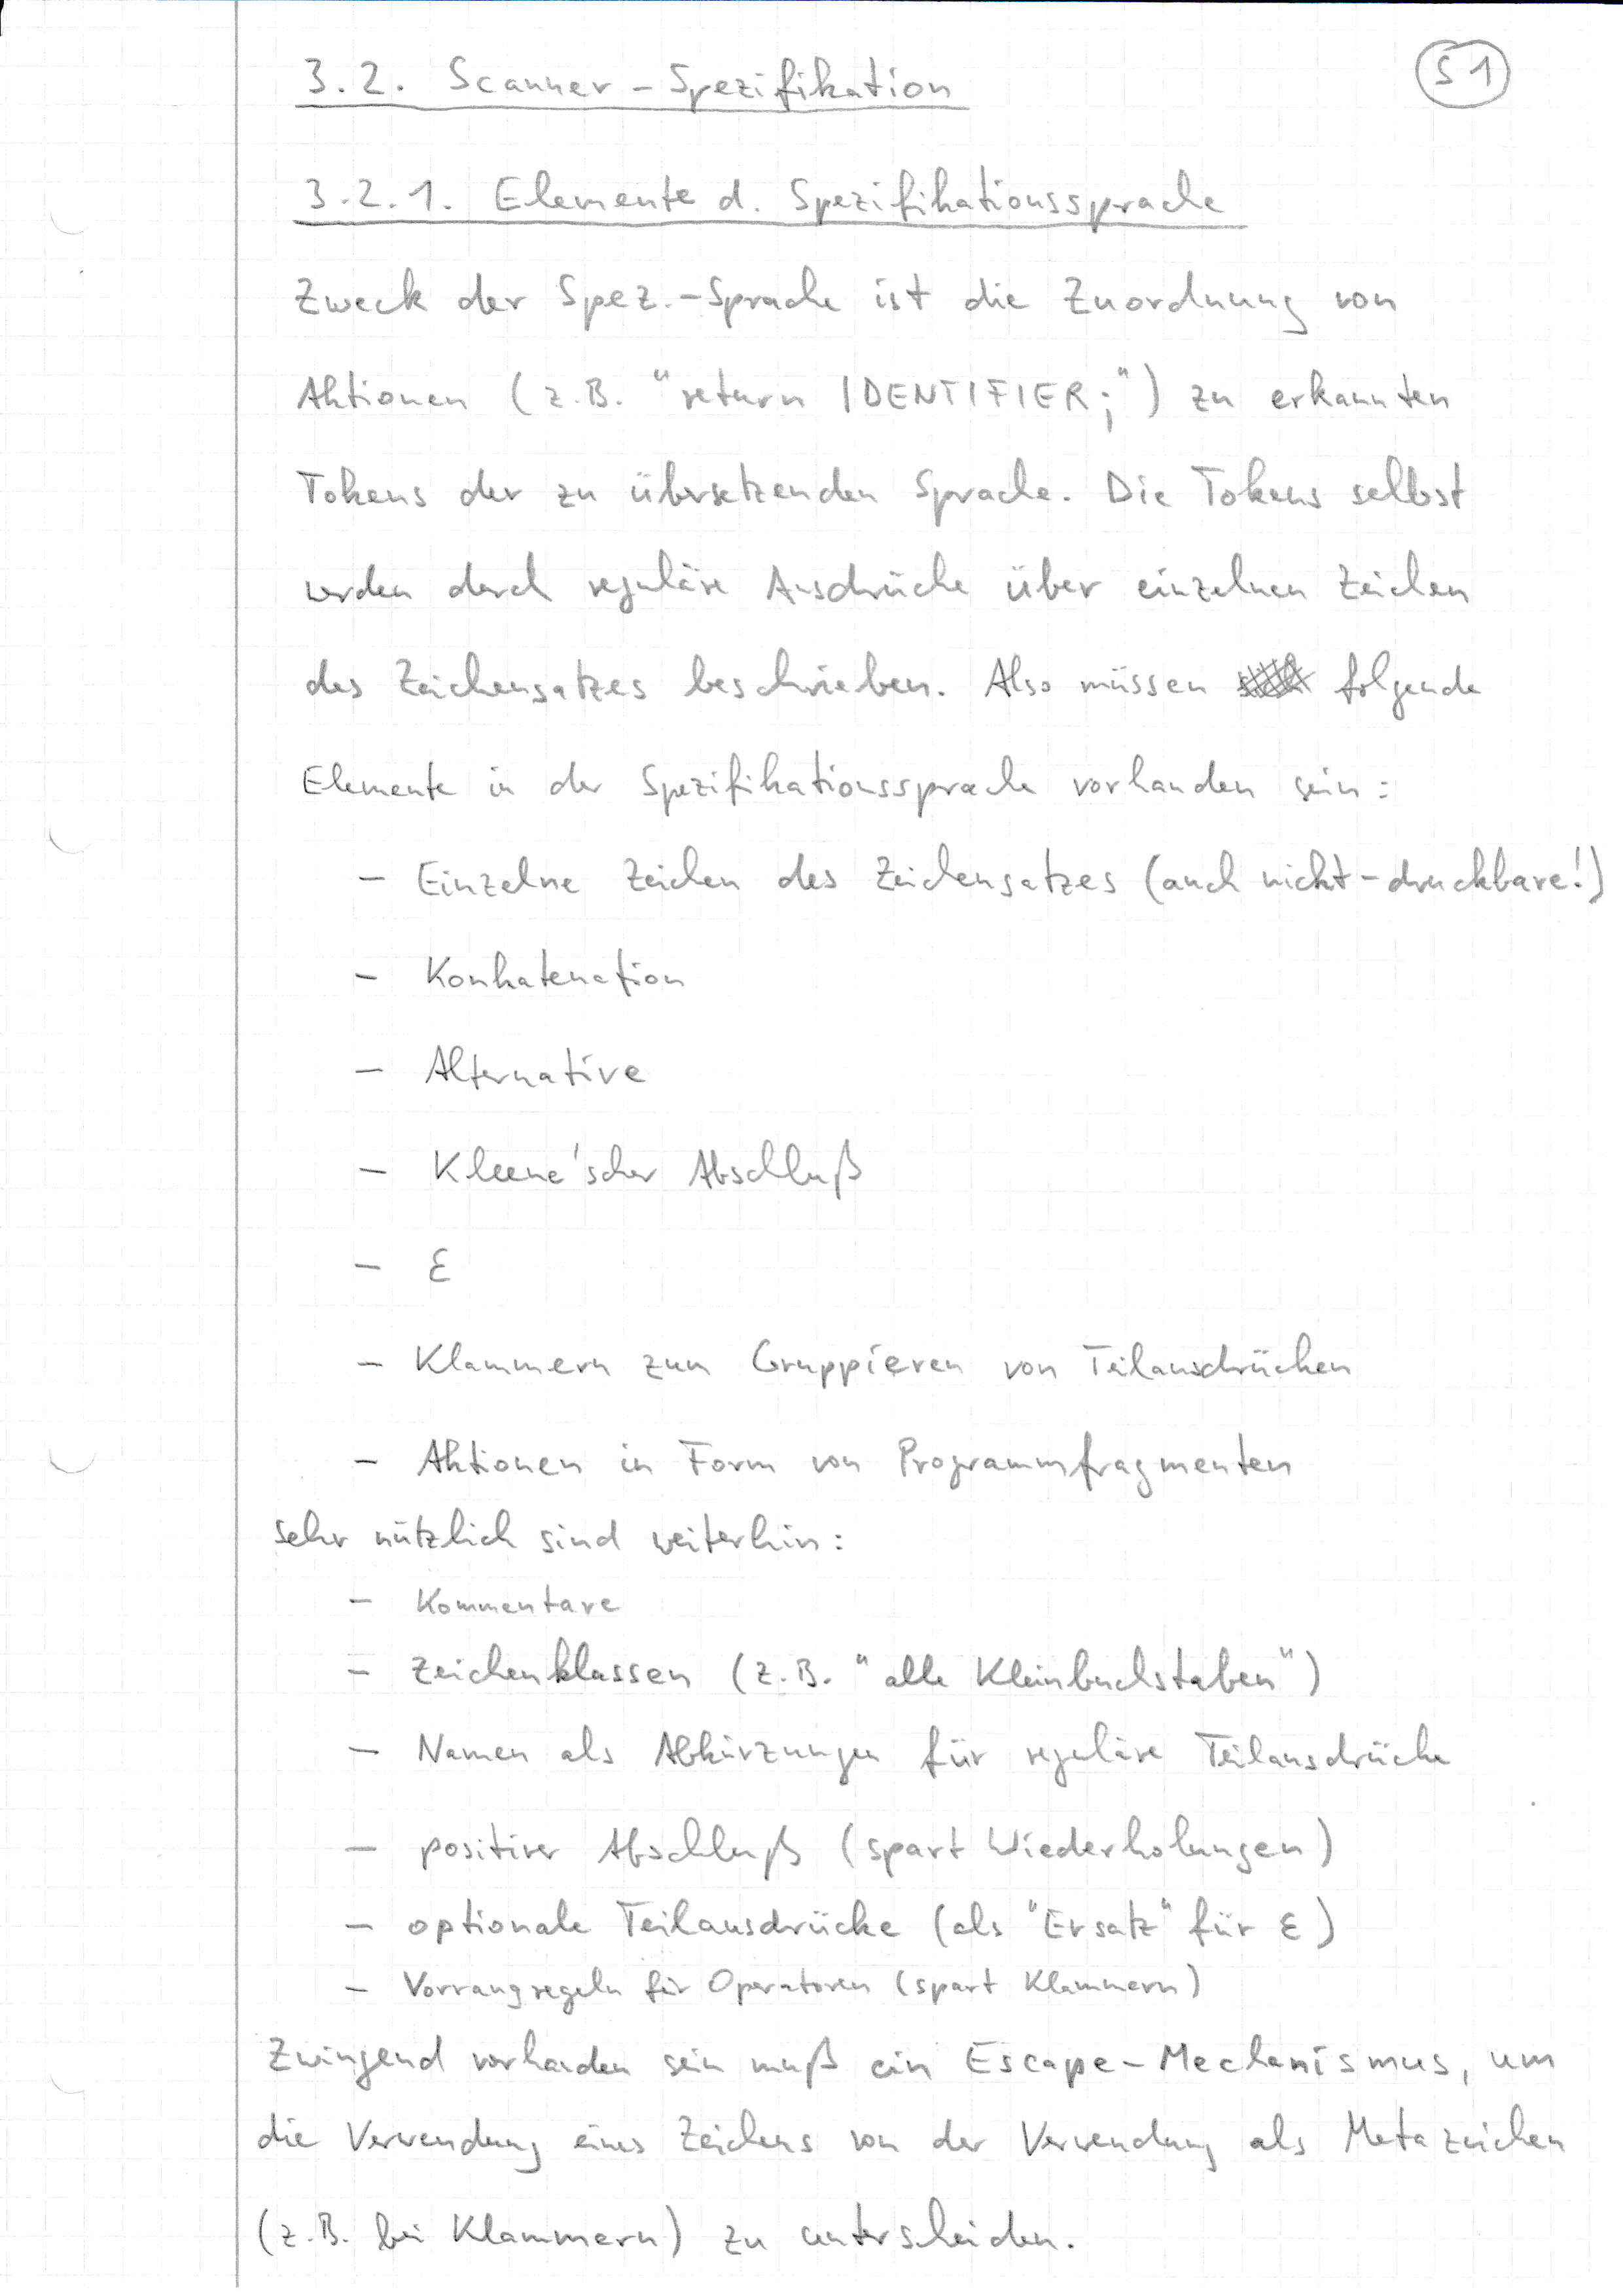 51
3.2. Scanner-Spezifikation
3.2.1. Elemente d. Spezifikationssprache
Zweck der Spez.-Sprache ist die Zuordnung von
Aktionen (z.B. "return IDENTIFIER;") zu erkannten
Tokens der zu übersetzenden Sprache. Die Tokens selbst
werden durch reguläre Ausdrücke über einzelnen Zeichen
des Zeichensatzes beschrieben. Also müssen folgende
Elemente in der Spezifikationssprache vorhanden sein:
- Einzelne Zeichen des Zeichensatzes (auch nicht-druckbare!)
- Konkatenation
- Alternative
- Kleene'scher Abschluß
- ε
- Klammern zum Gruppieren von Teilausdrücken
- Aktionen in Form von Programmfragmenten
Sehr nützlich sind weiterhin:
- Kommentare
- Zeichenklassen (z.B. "alle Kleinbuchstaben")
- Namen als Abkürzungen für reguläre Teilausdrücke
- positiver Abschluß (spart Wiederholungen)
- optionale Teilausdrücke (als "Ersatz" für ε)
- Vorrangregeln für Operatoren (spart Klammern)
Zwingend vorhanden sein muß ein Escape-Mechanismus, um
die Verwendung eines Zeichens von der Verwendung als Metazeichen
(z.B. bei Klammern) zu unterscheiden.